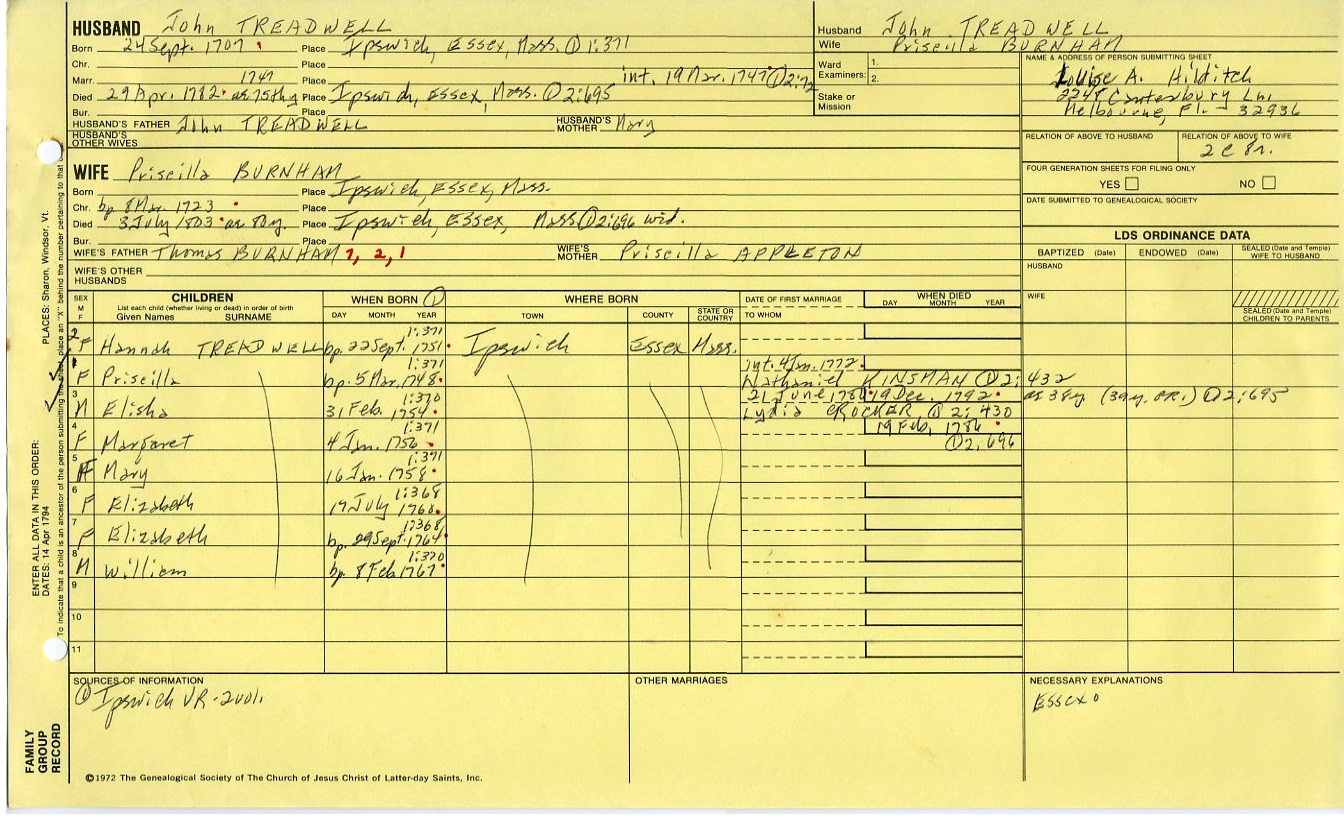 HUSBAND John TREADWELL
Born 24 Sept. 1707 Place Ipswich, Essex, Mass. ① 1:371
Chr. Place
Marr. 1747 Place int. 19 Mar. 1747 ① 2:
Died 29 Apr. 1782 ae 75th y Place Ipswich, Essex, Mass. ① 2:695
Bur. Place
HUSBAND'S FATHER John TREADWELL HUSBAND'S MOTHER Mary
HUSBAND'S OTHER WIVES
Husband John TREADWELL
Wife Priscilla BURNHAM
Ward Examiners: 1.
2.
Stake or Mission
NAME & ADDRESS OF PERSON SUBMITTING SHEET
Louise A. Hilditch
2248 Canterbury Ln.
Melbourne, Fl. - 32936
RELATION OF ABOVE TO HUSBAND RELATION OF ABOVE TO WIFE
2 c 8r.
FOUR GENERATION SHEETS FOR FILING ONLY
YES NO
DATE SUBMITTED TO GENEALOGICAL SOCIETY
WIFE Priscilla BURNHAM
Born Place Ipswich, Essex, Mass.
Chr. bp 8 Mar. 1723 Place
Died 3 July 1803 ae 80y. Place Ipswich, Essex, Mass ① 2:696 wid.
Bur. Place
WIFE'S FATHER Thomas BURNHAM 7, 2, 1 WIFE'S MOTHER Priscilla APPLETON
WIFE'S OTHER HUSBANDS
LDS ORDINANCE DATA
BAPTIZED (Date) ENDOWED (Date) SEALED (Date and Temple) WIFE TO HUSBAND
HUSBAND
WIFE
SEALED (Date and Temple) CHILDREN TO PARENTS
SEX M F CHILDREN WHEN BORN ① WHERE BORN DATE OF FIRST MARRIAGE WHEN DIED
List each child (whether living or dead) in order of birth
Given Names SURNAME DAY MONTH YEAR TOWN COUNTY STATE OR COUNTRY TO WHOM DAY MONTH YEAR
2 1:371
F Hannah TREADWELL bp. 22 Sept. 1751 Ipswich Essex Mass.
1 1:371 int. 4 Jan. 1772
F Priscilla bp. 5 Mar. 1748 Nathaniel KINSMAN ① 2:432
3 1:370 21 June 1780 19 Dec. 1792 ae 38y (39y. CR1) ① 2:695
M Elisha 31 Feb. 1754 Lydia CROCKER ① 2:430
4 1:371 19 Feb. 1786
F Margaret 4 Jan. 1756 ① 2,696
5 1:371
F Mary 16 Jan. 1758
6 1:368
F Elizabeth 17 July 1760
7 1:368
F Elizabeth bp. 29 Sept. 1764
8 1:370
M William bp. 8 Feb. 1767
9
10
11
SOURCES OF INFORMATION
① Ipswich VR - 2 vol.
OTHER MARRIAGES
NECESSARY EXPLANATIONS
Essex 0
©1972 The Genealogical Society of The Church of Jesus Christ of Latter-day Saints, Inc.
FAMILY GROUP RECORD
ENTER ALL DATA IN THIS ORDER:
DATES: 14 Apr 1794
PLACES: Sharon, Windsor, Vt.
To indicate that a child is an ancestor of the person submitting the sheet, place an "X" behind the number pertaining to that